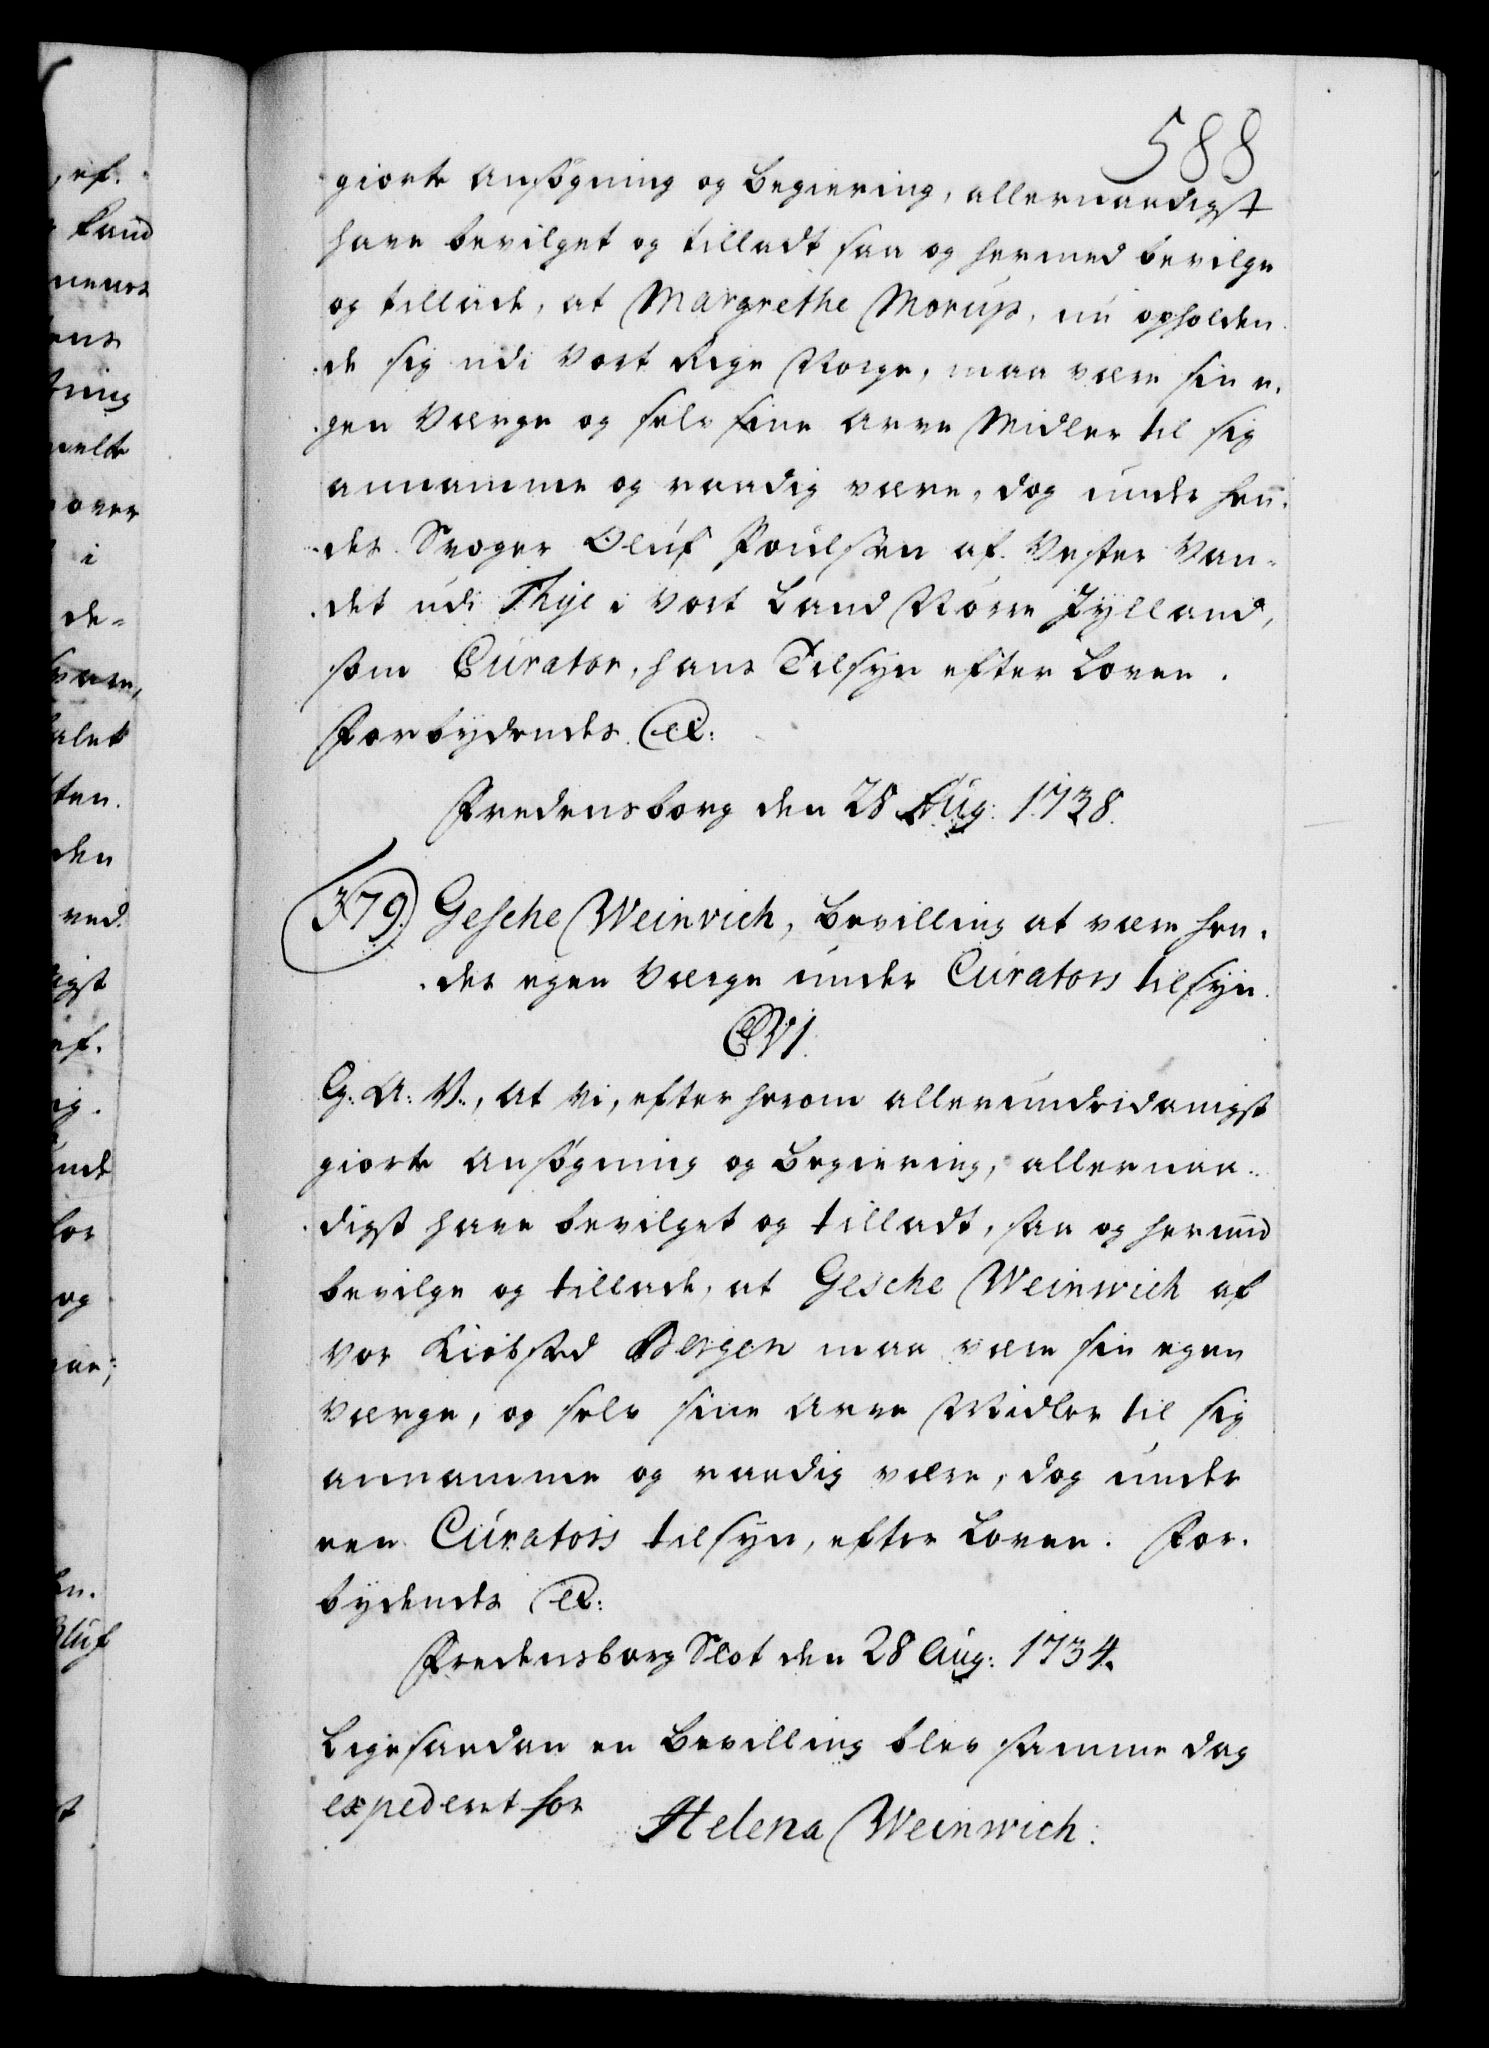 588
giorte Ansøgning og Begiering, allernaadigst
have bevilget og tilladt saa og hermed bevilge
og tillade, at Margrethe Morups, nu opholden
de sig udi Vort Rige Norge, maa være sin e-
gen Værge og selv sine Arve Midler til sig
annamme og raadig være, dog under hen-
des Svoger Oluf Poulsen af Vester Van-
det udi Thye i Vort Land Nørre Jylland,
som Curator, hans Tilsyn efter Loven.
Forbydendes &c:
Fredensborg den 28 Aug: 1738.
379. Gesche Weinvich, Bevilling at være hen-
des egen Værge under Curators tilsyn.
C VI.
G: A: V:, At Vi, efter herom allerunderdanigst
giorte Ansøgning og Begiering, allernaa-
digst have bevilget og tilladt, saa og hermed
bevilge og tillade, at Gesche Weinwich af
Vor Kiøbsted Bergen maa være sin egen
Værge, og selv sine Arve Midler til sig
annamme og raadig være, dog under
een Curators tilsyn, efter Loven. For-
bydendes &c:
Fredensborg Slot den 28 Aug: 1734.
Ligesaadan en Bevilling blev samme dag
expederet for Helena Weinwich.